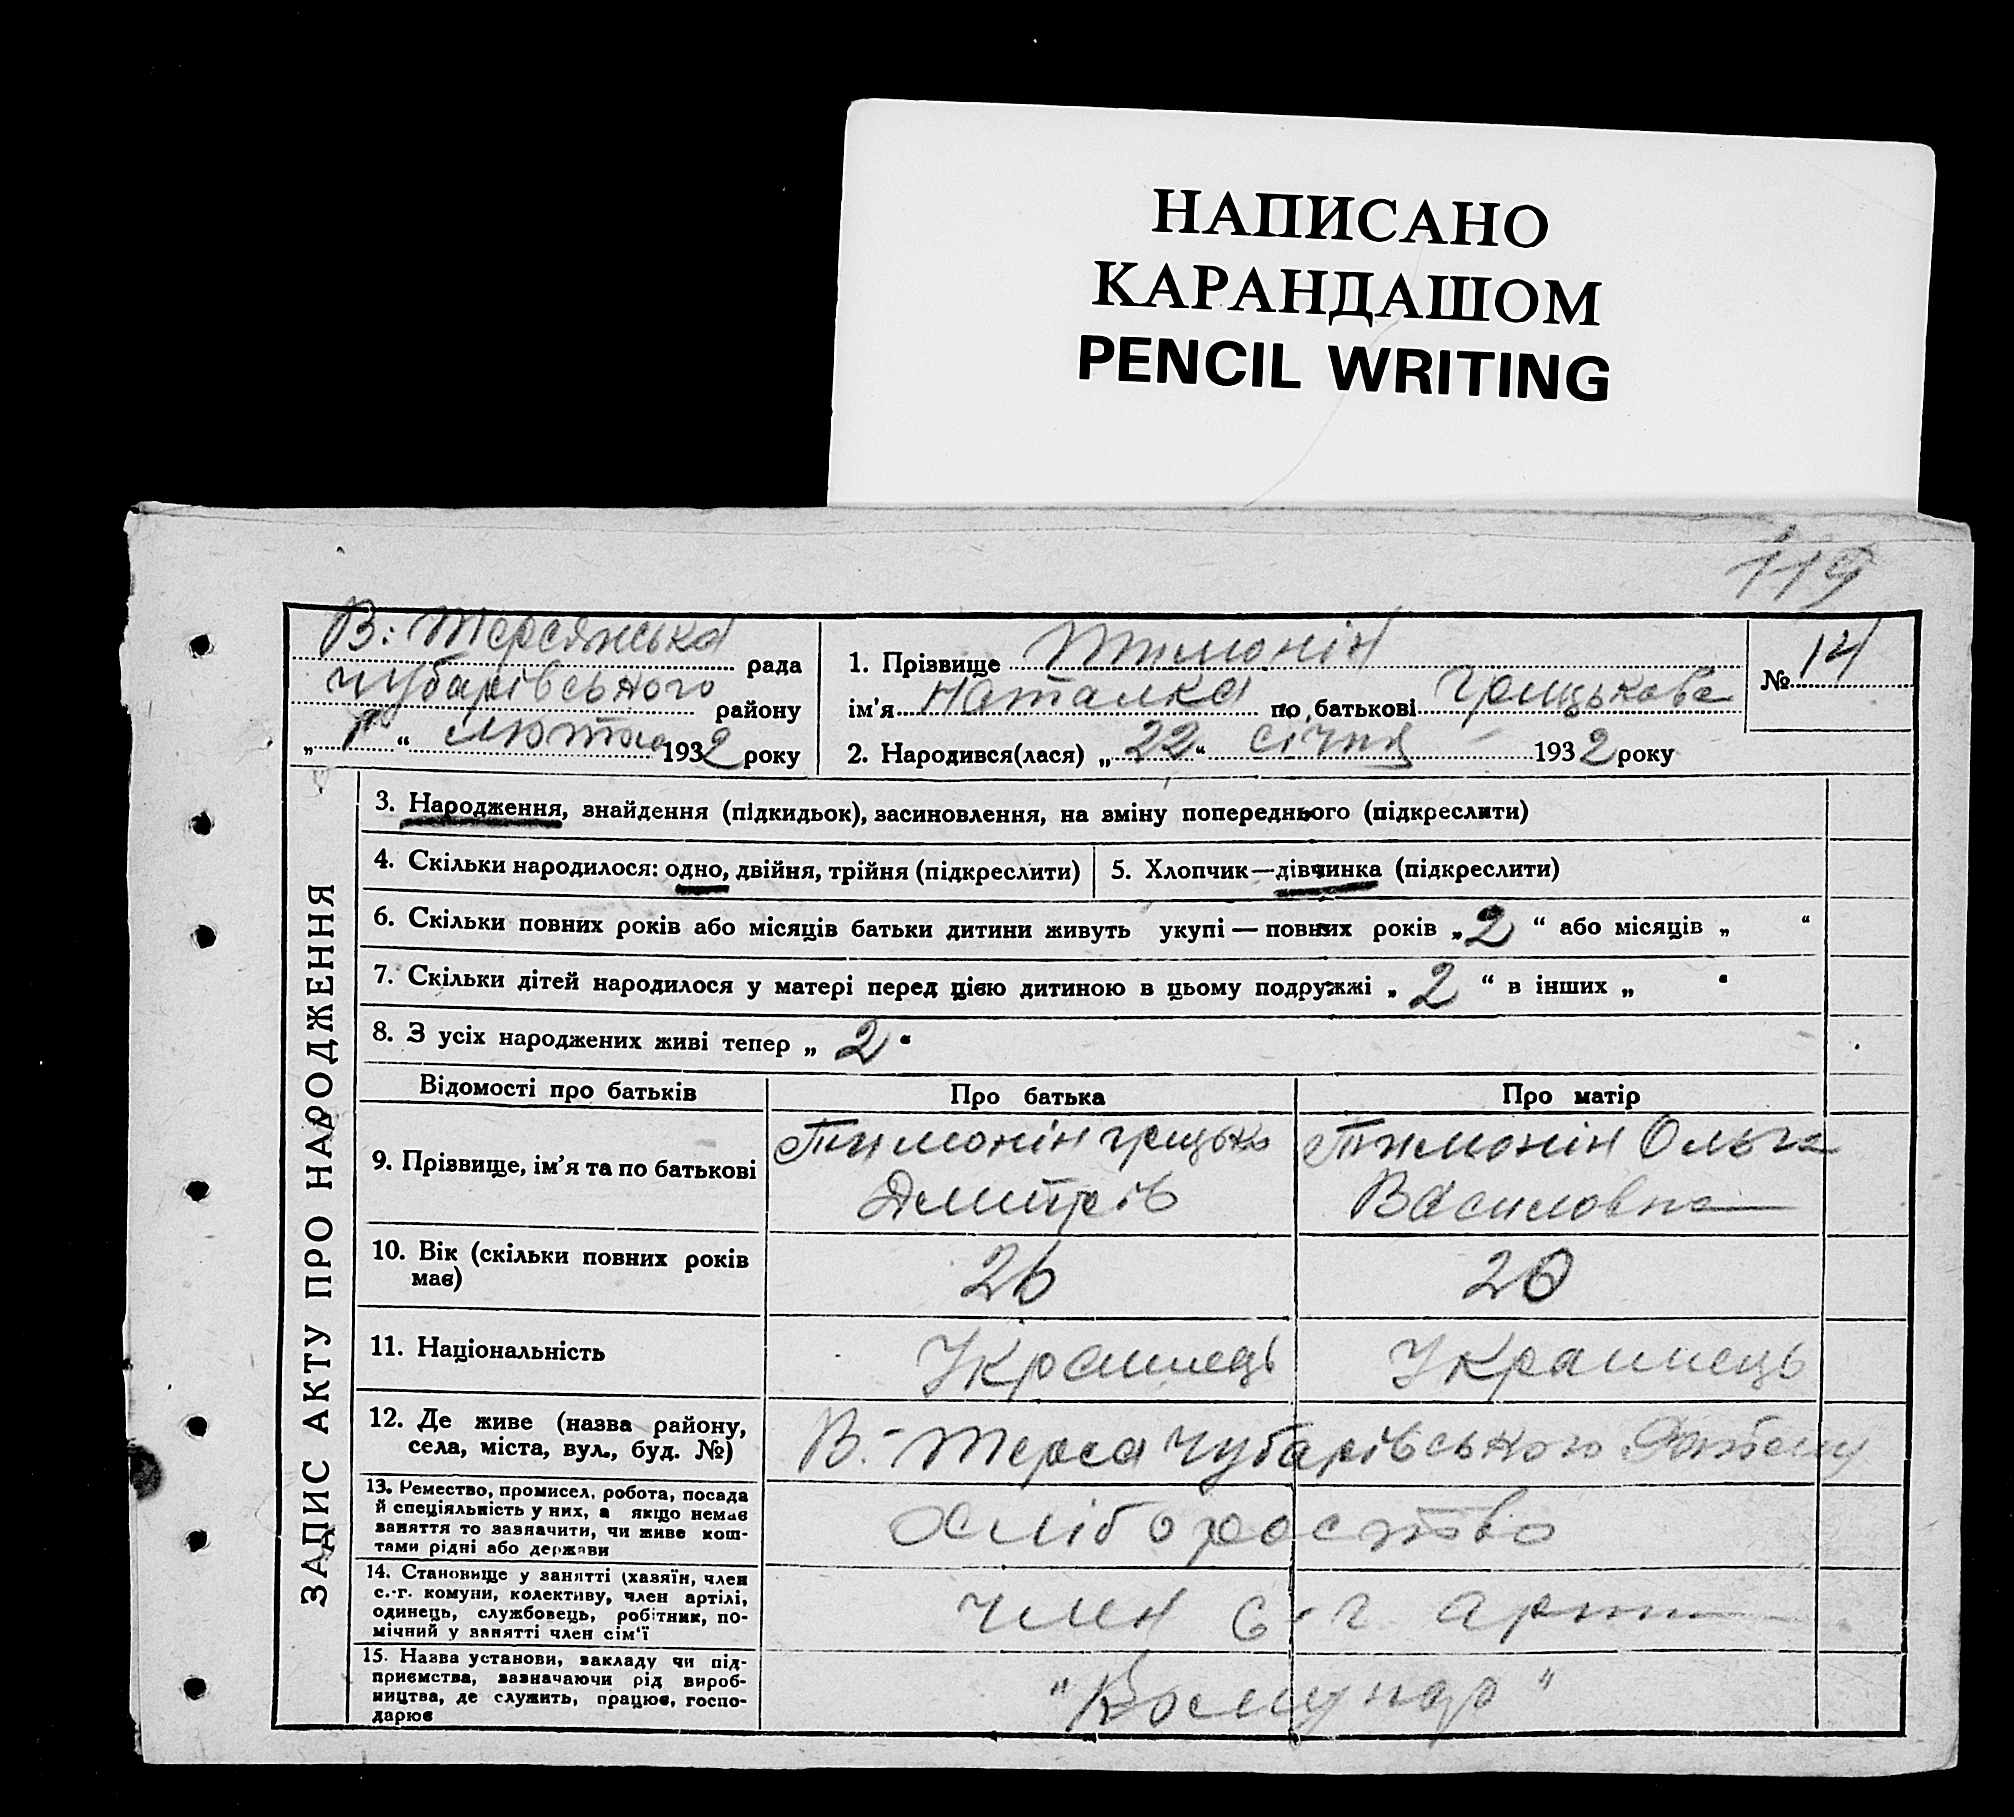 НАПИСАНО
КАРАНДАШОМ
PENCIL WRITING
119
В: Терсянська рада
чубарівського району
„ 1 “ лютого 1932 року
1. Прізвище Тимонін
ім'я Наталка по батькові грицькова
2. Народився(лася) „ 22 “ січня 1932 року
№ 14
ЗАПИС АКТУ ПРО НАРОДЖЕННЯ
3. Народження, знайдення (підкидьок), засиновлення, на зміну попереднього (підкреслити)
4. Скільки народилося: одно, двійня, трійня (підкреслити)
5. Хлопчик—дівчинка (підкреслити)
6. Скільки повних років або місяців батьки дитини живуть укупі — повних років „ 2 “ або місяців „ “
7. Скільки дітей народилося у матері перед цією дитиною в цьому подружжі „ 2 “ в інших „ “
8. З усіх народжених живі тепер „ 2 “
Відомості про батьків
Про батька
Про матір
9. Прізвище, ім'я та по батькові
Тимонін грицько
Дмитрів
Тимонін Ольга
Василовна
10. Вік (скільки повних років
має)
26
20
11. Національність
Украинець
Украинець
12. Де живе (назва району,
села, міста, вул., буд. №)
В.-Терса Чубарівського
13. Ремество, промисел, робота, посада
й спеціяльність у них, а якщо немає
заняття то зазначити, чи живе кош-
тами рідні або держави
хліборобство
14. Становище у занятті (хазяїн, член
с.-г. комуни, колективу, член артілі,
одинець, службовець, робітник, по-
мічний у занятті член сім'ї
член с-г арт
15. Назва установи, закладу чи під-
приємства, зазначаючи рід вироб-
ництва, де служить, працює, госпо-
дарює
"Комунар"